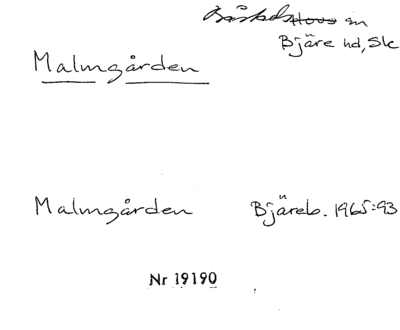 Båstads Hovs sn
Bjäre hd, Sk
Malmgården
Malmgården Bjäreb. 1965:93
Nr 19190